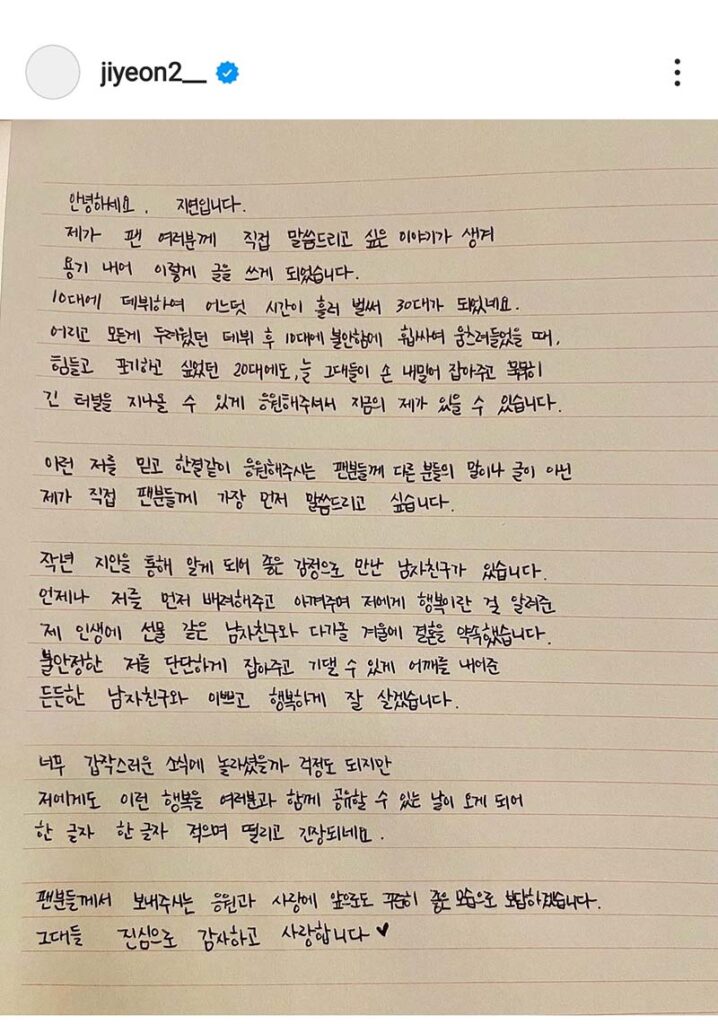 jiyeon2__
안녕하세요. 지연입니다.
제가 팬 여러분께 직접 말씀드리고 싶은 이야기가 생겨
용기 내어 이렇게 글을 쓰게 되었습니다.
10대에 데뷔하여 어느덧 시간이 흘러 벌써 30대가 되었네요.
어리고 모든게 두려웠던 데뷔 후 10대에 불안함에 휩싸여 움츠려들었을 때,
힘들고 포기하고 싶었던 20대에도, 늘 그대들이 손 내밀어 잡아주고 묵묵히
긴 터널을 지나올 수 있게 응원해주셔서 지금의 제가 있을 수 있습니다.
이런 저를 믿고 한결같이 응원해주시는 팬분들께 다른 분들의 말이나 글이 아닌
제가 직접 팬분들께 가장 먼저 말씀드리고 싶습니다.
작년 지인을 통해 알게 되어 좋은 감정으로 만난 남자친구가 있습니다.
언제나 저를 먼저 배려해주고 아껴주며 저에게 행복이란 걸 알려준
제 인생에 선물 같은 남자친구와 다가올 겨울에 결혼을 약속했습니다.
불안정한 저를 단단하게 잡아주고 기댈 수 있게 어깨를 내어준
든든한 남자친구와 이쁘고 행복하게 잘 살겠습니다.
너무 갑작스러운 소식에 놀라셨을까 걱정도 되지만
저에게도 이런 행복을 여러분과 함께 공유할 수 있는 날이 오게 되어
한 글자 한 글자 적으며 떨리고 긴장되네요.
팬분들께서 보내주시는 응원과 사랑에 앞으로도 꾸준히 좋은 모습으로 보답하겠습니다.
그대들 진심으로 감사하고 사랑합니다 ♥